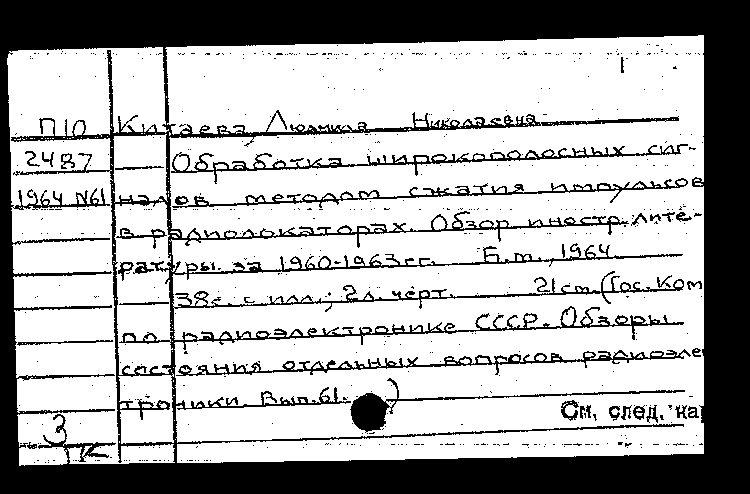 1
П10 Китаева, Людмила Николаевна
2487 Обработка широкополосных сиг-
1964 №61 налов методом сжатия импульсов
в радиолокаторах. Обзор иностр. лите-
ратуры за 1960-1963 гг. Б.м., 1964
38с. с илл.; 2л. черт. 21 см. (Гос. Ком
по радиоэлектронике СССР. Обзоры
состояния отдельных вопросов радиоэле
троники Вып. 61. )
См. след. ка
3